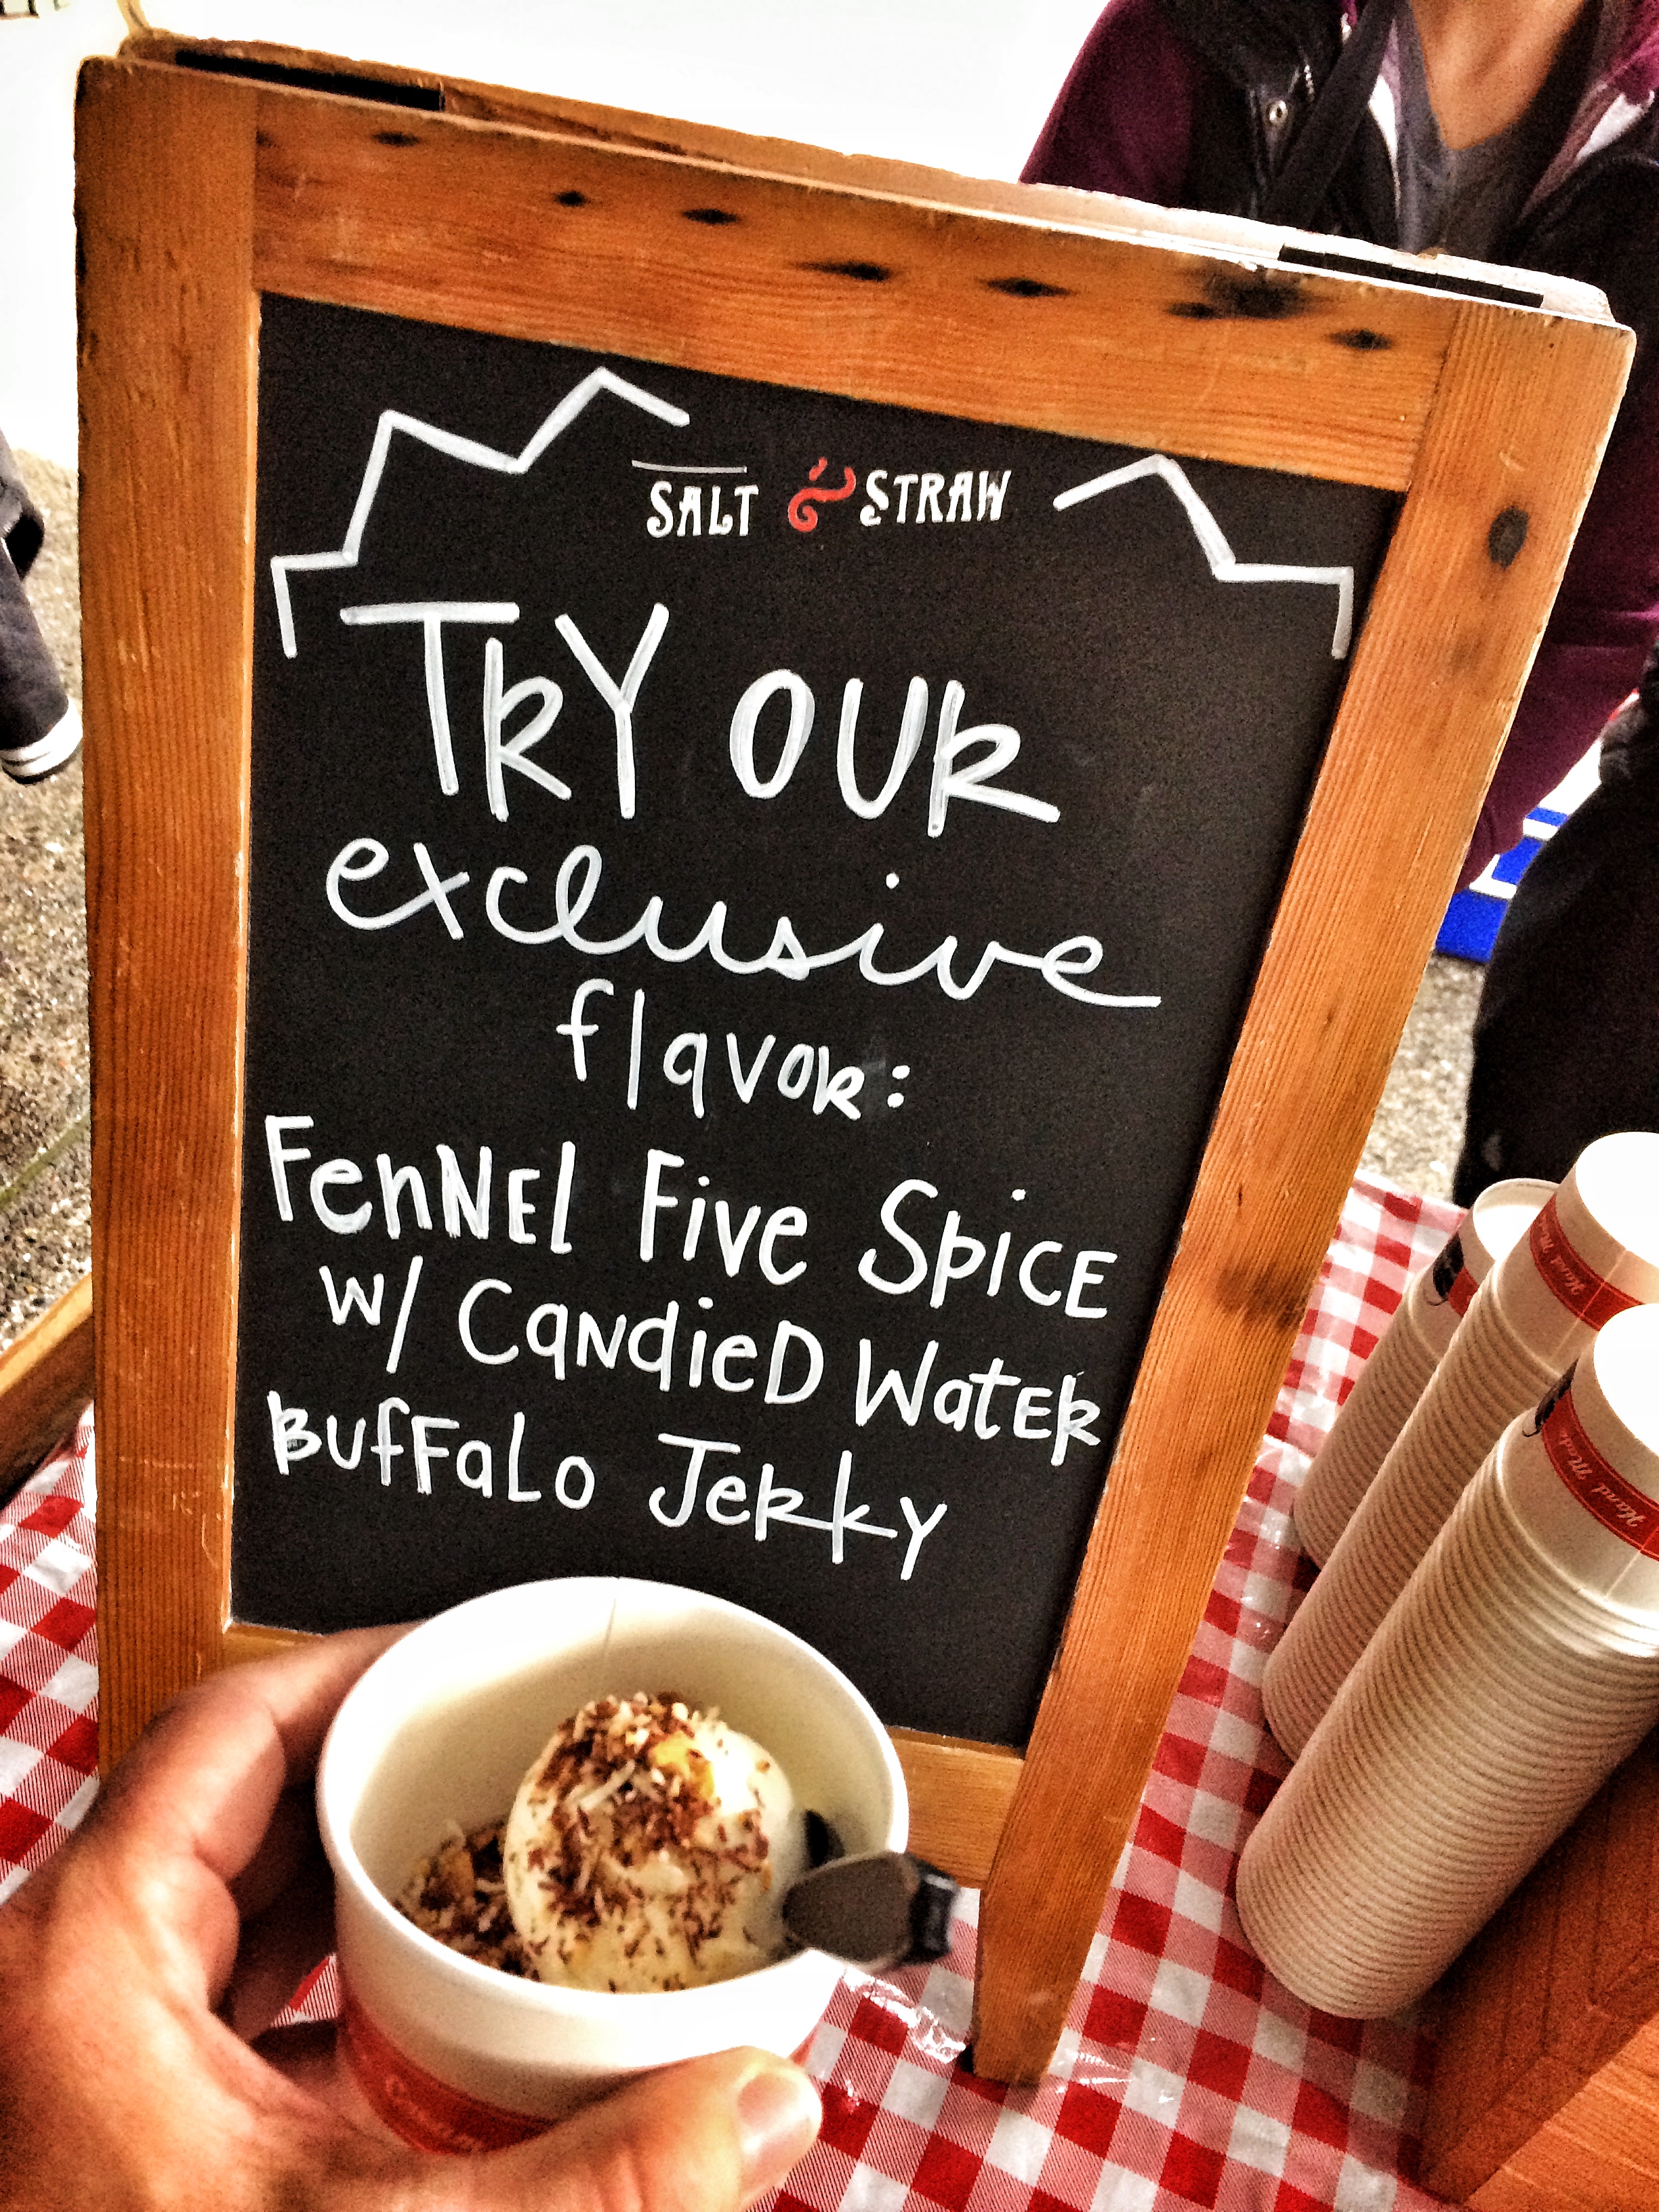 SALT & STRAW
TRY OUR
exclusive
flavor:
Fennel Five Spice
w/ Candied Water
Buffalo Jerky
Hand M
Hand M